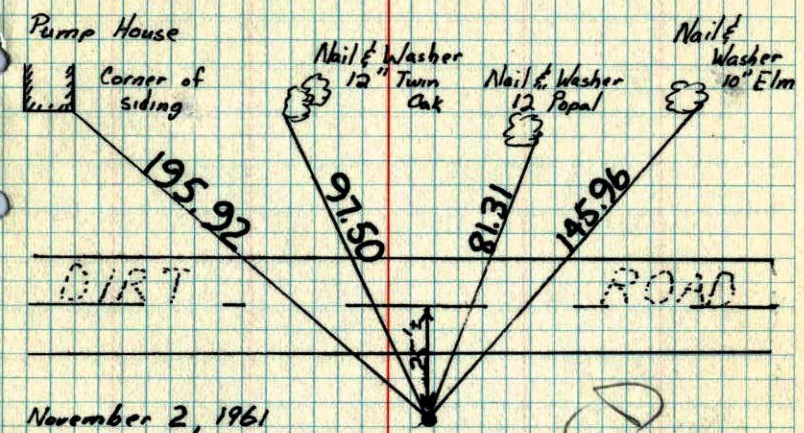 Pump House
Corner of
siding
Nail & Washer
12" Twin
Oak
Nail & Washer
12 Popal
Nail &
Washer
10" Elm
195.92
97.50
81.31
145.96
DIRT ROAD
25'±
November 2, 1961